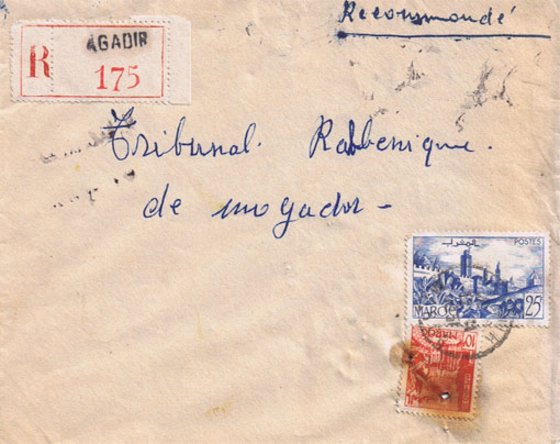 Recommandé
AGADIR
R 175
Tribunal Rabbenique.
de mogador -
المغرب
POSTES
MAROC 25F
10F MAROC